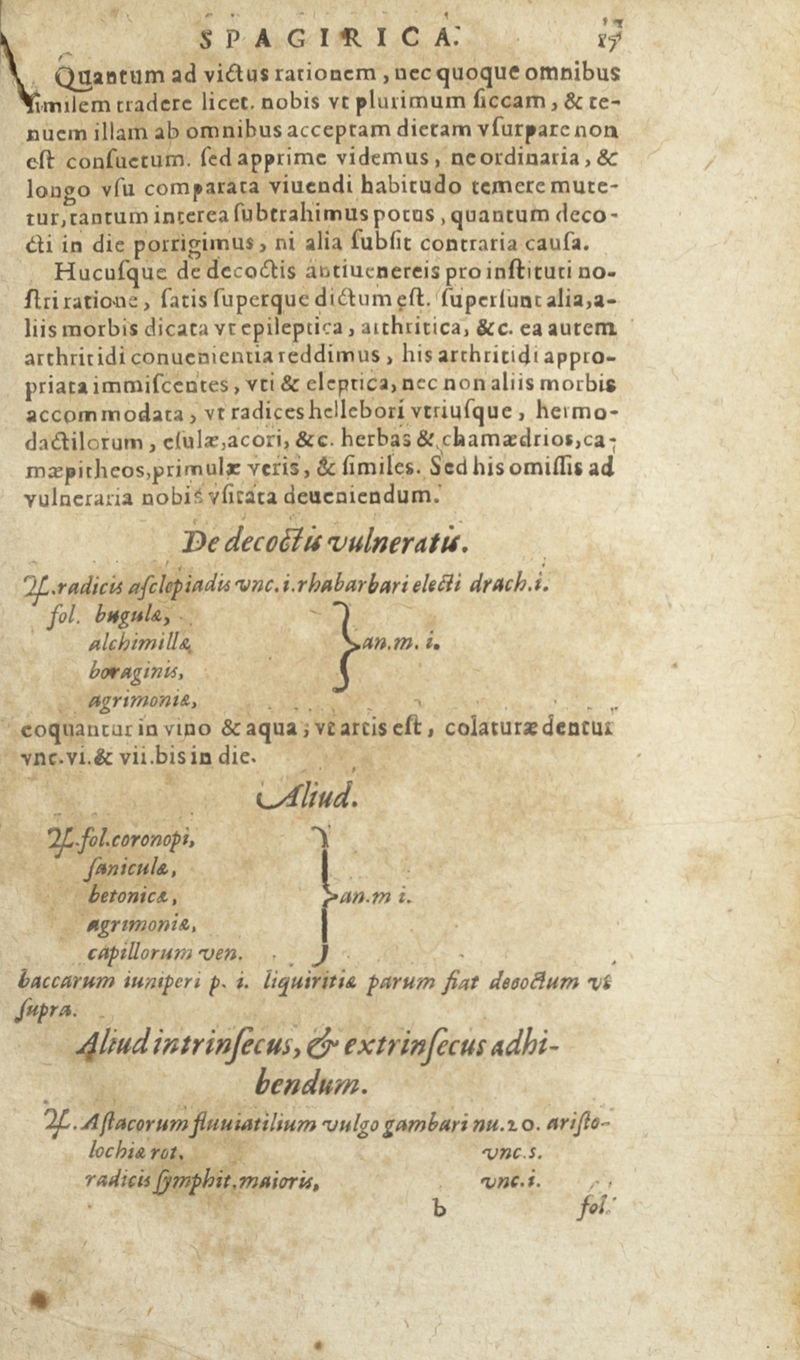 SPAGIRICA. 17
Quantum ad victus rationem, nec quoque omnibus
similem tradere licet. nobis vt plurimum siccam, & te-
nuem illam ab omnibus acceptam dietam vsurpare non
est consuetum. sed apprime videmus, ne ordinaria, &
longo vsu comparata viuendi habitudo temere mute-
tur, tantum interea subtrahimus potus, quantum deco-
cti in die porrigimus, ni alia subsit contraria causa.
Hucusque de decoctis antiuenereis pro instituti no-
stri ratione, satis superque dictum est. supersunt alia, a-
liis morbis dicata vt epileptica, arthritica, &c. ea autem
arthritidi conuenientia reddimus, his arthritidi appro-
priata immiscentes, vti & eleptica, nec non aliis morbis
accommodata, vt radices hellebori vtriusque, hermo-
dactilorum, esulæ, acori, &c. herbas & chamædrios, ca-
mæpitheos, primulæ veris, & similes. Sed his omissis ad
vulneraria nobis vsitata deueniendum.
De decoctis vulneratis.
♃. radicis asclepiadis vnc. i. rhabarbari electi drach. i.
fol. bugulæ,
alchimillæ, } an. m. i.
boraginis,
agrimoniæ,
coquantur in vino & aqua, vt artis est, colaturæ dentur
vnc. vi. & vii. bis in die.
Aliud.
♃. fol. coronopi,
saniculæ,
betonicæ, } an. m i.
agrimoniæ,
capillorum ven.
baccarum iuniperi p. i. liquiritiæ parum fiat decoctum vt
supra.
Aliud intrinsecus, & extrinsecus adhi-
bendum.
♃. Astacorum fluuiatilium vulgo gambari nu. 20. aristo-
lochiæ rot. vnc. s.
radicis symphit. maioris, vnc. i.
b fol.